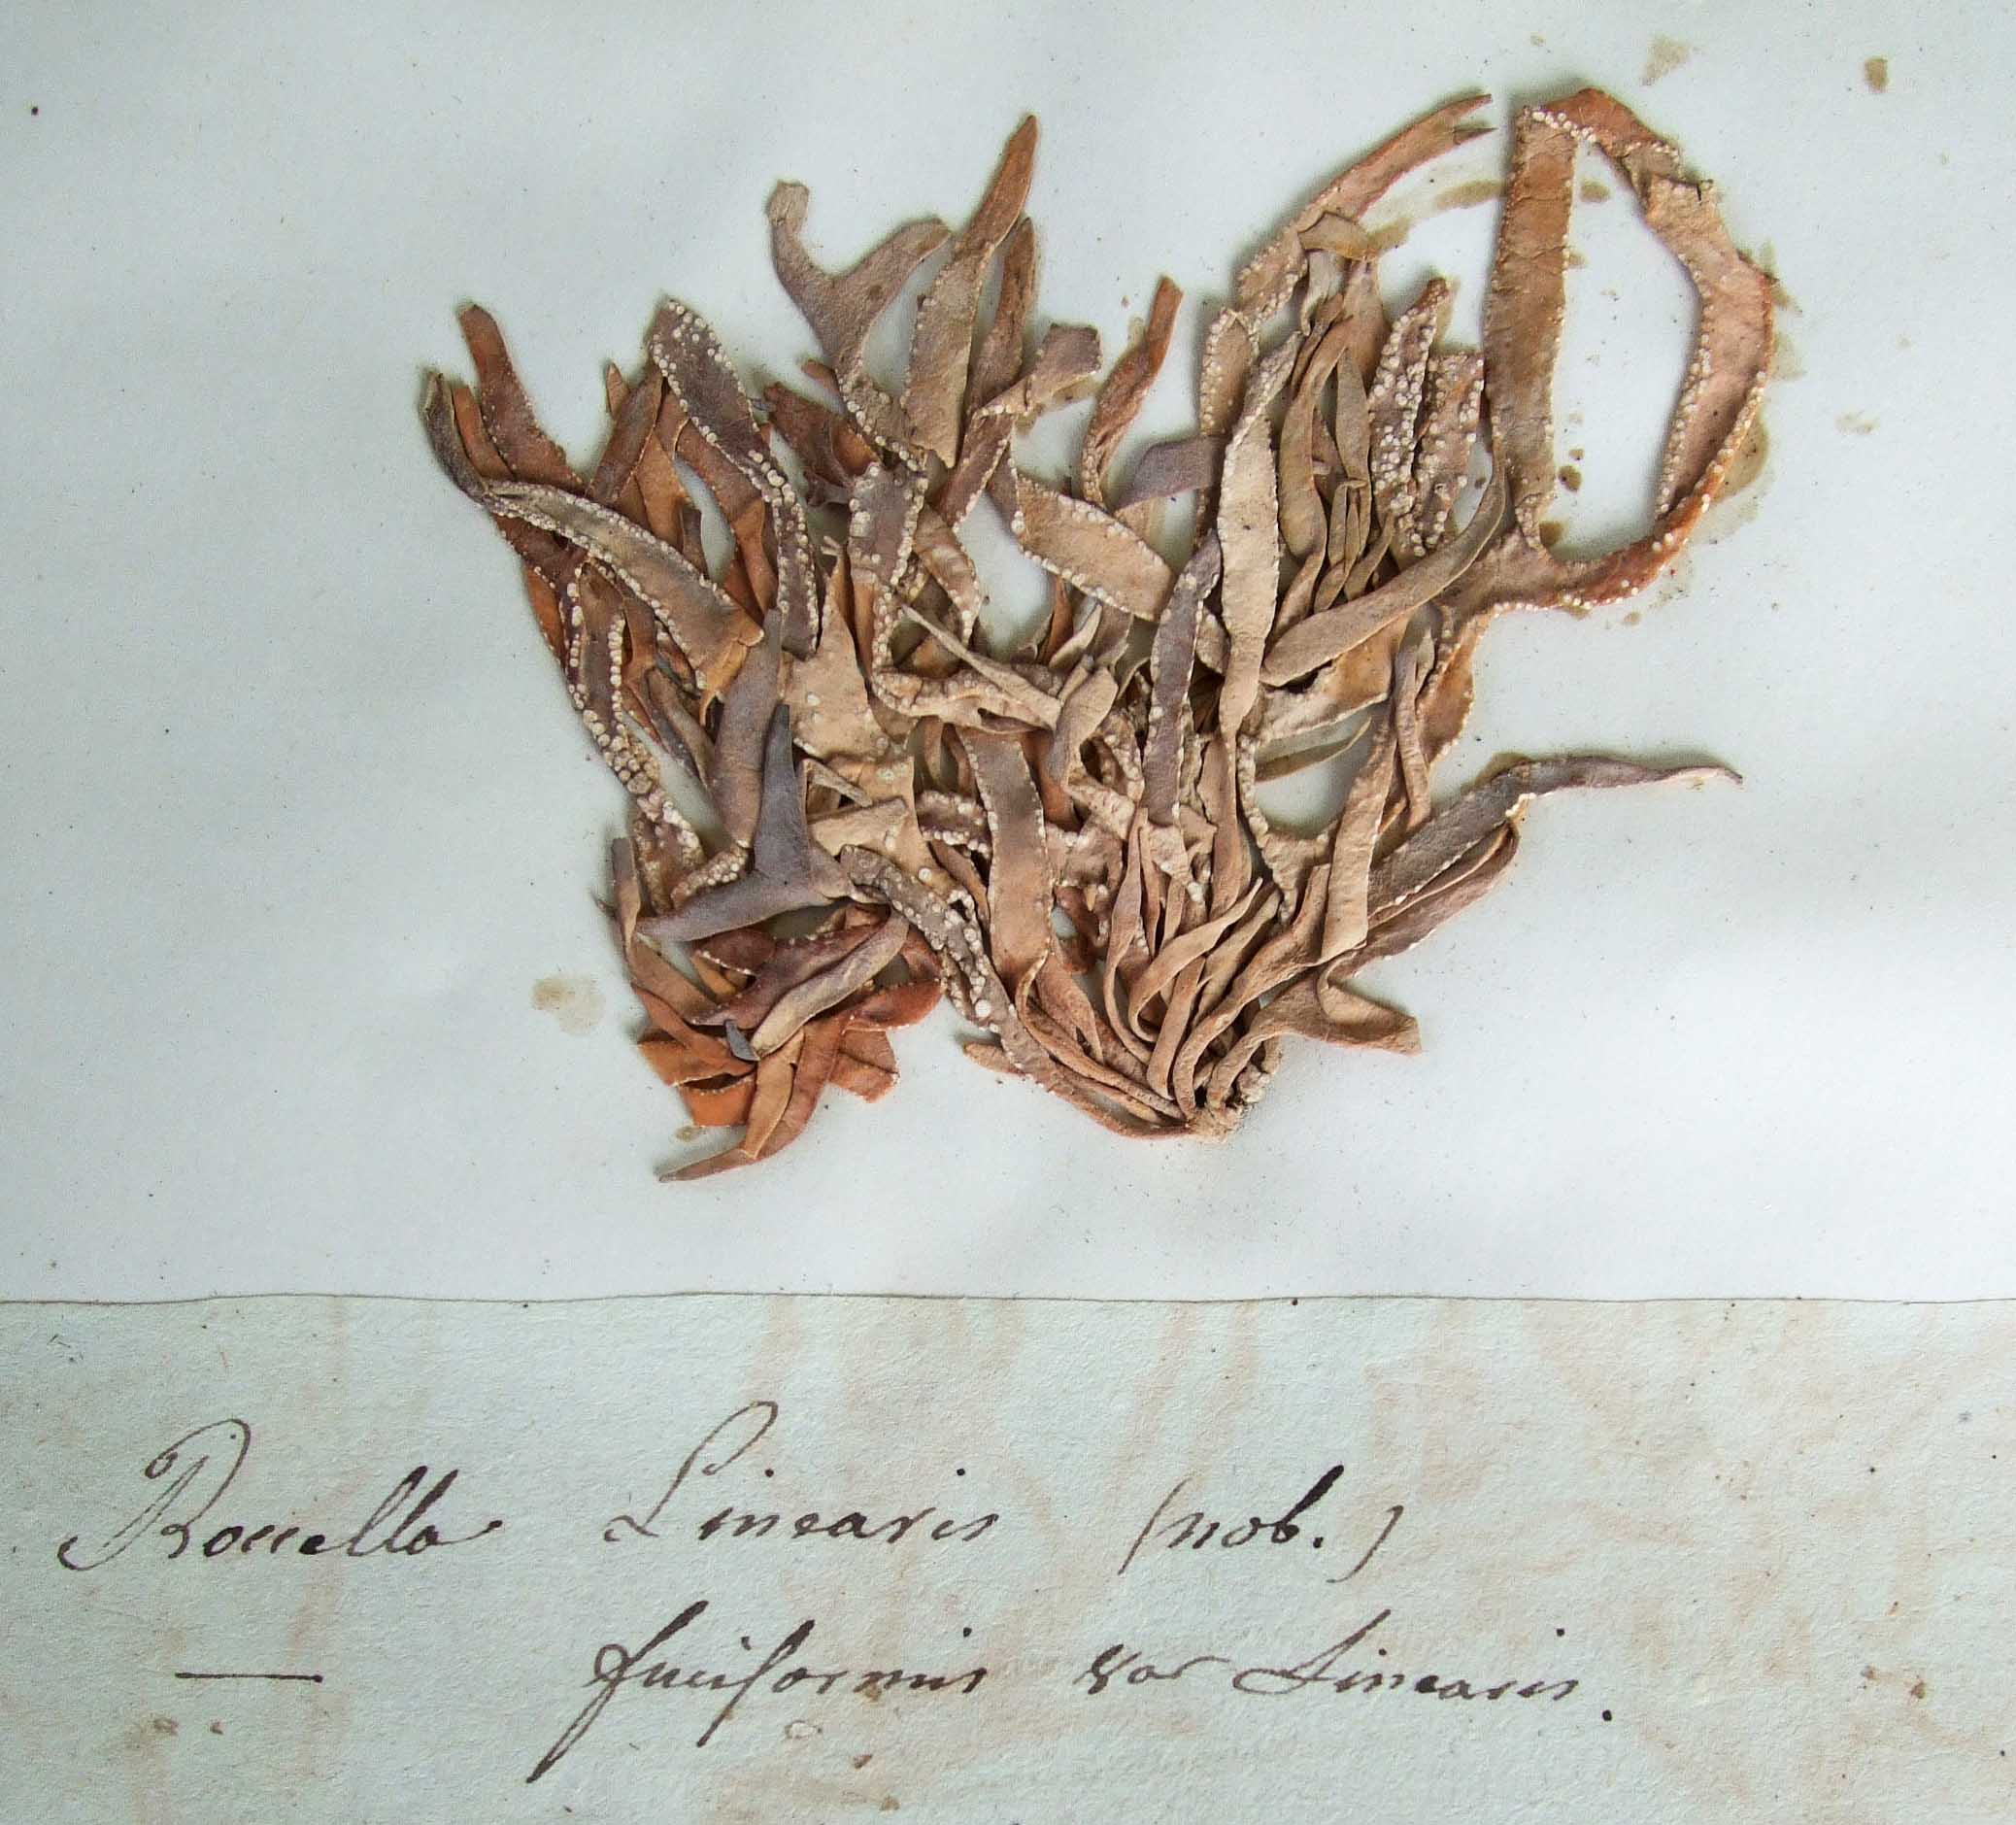 Roccella Linearis (nob.)
— fuciformis var Linearis.